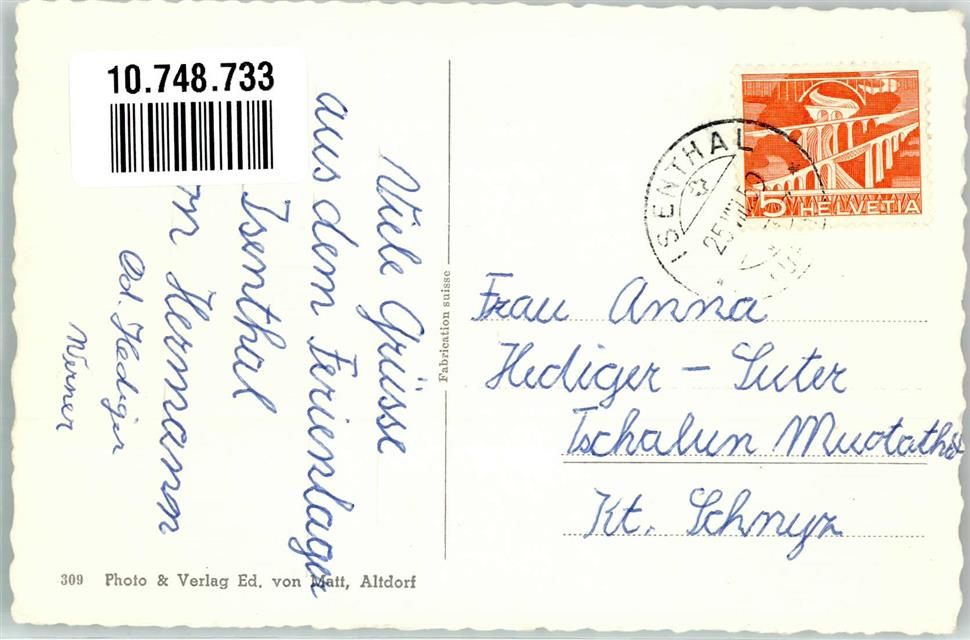 10.748.733
Viele Grüsse
aus dem Ferienlager
Isenthal
Hermann
Ad. Hediger
Werner
Fabrication suisse
ISENTHAL
25.VIII.50
5 HELVETIA
Frau Anna
Hediger - Suter
Tschalun Muotathal
Kt. Schwyz
309 Photo & Verlag Ed. von Matt, Altdorf